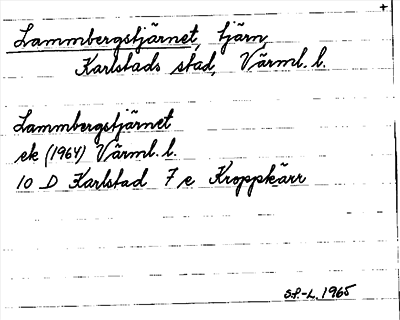 +
Lammbergstjärnet, tjärn
Karlstads stad, Värml. l.
Lammbergstjärnet
ek (1964) Värml. l.
10 D Karlstad 7 e Kroppkärr
S.P.-L. 1965